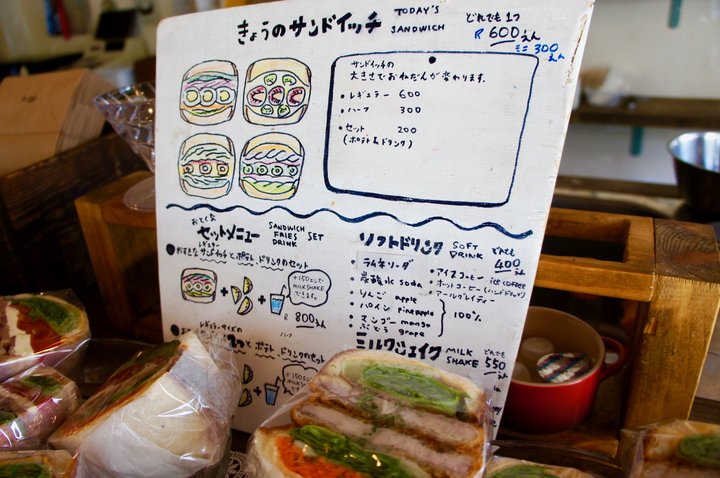 きょうのサンドイッチ TODAY'S SANDWICH
どれでも1つ
R 600えん
ミニ 300えん
サンドイッチの
大きさでおねだんが変わります。
• レギュラー 600
• ハーフ 300
• セット 200
(ポテト&ドリンク)
おとくな
セットメニュー SANDWICH FRIES DRINK SET
レギュラー
おすきなサンドイッチとポテト、ドリンクのセット
+150えんで
MILK SHAKE
できます。
R 800えん
レギュラーサイズの ハーフ
2つとポテト、ドリンクのセット
+150えんで
MILK SHAKE
ソフトドリンク SOFT DRINK どれでも 400えん
• ラムネソーダ
• 炭酸水 soda
• りんご apple
• パイン pineapple
• マンゴー mango
• ぶどう grape
100%
• アイスコーヒー ice COFFEE
• ホットコーヒー (ハンドドリップ)
• アールグレイティー
ミルクシェイク MILK SHAKE どれでも 550えん